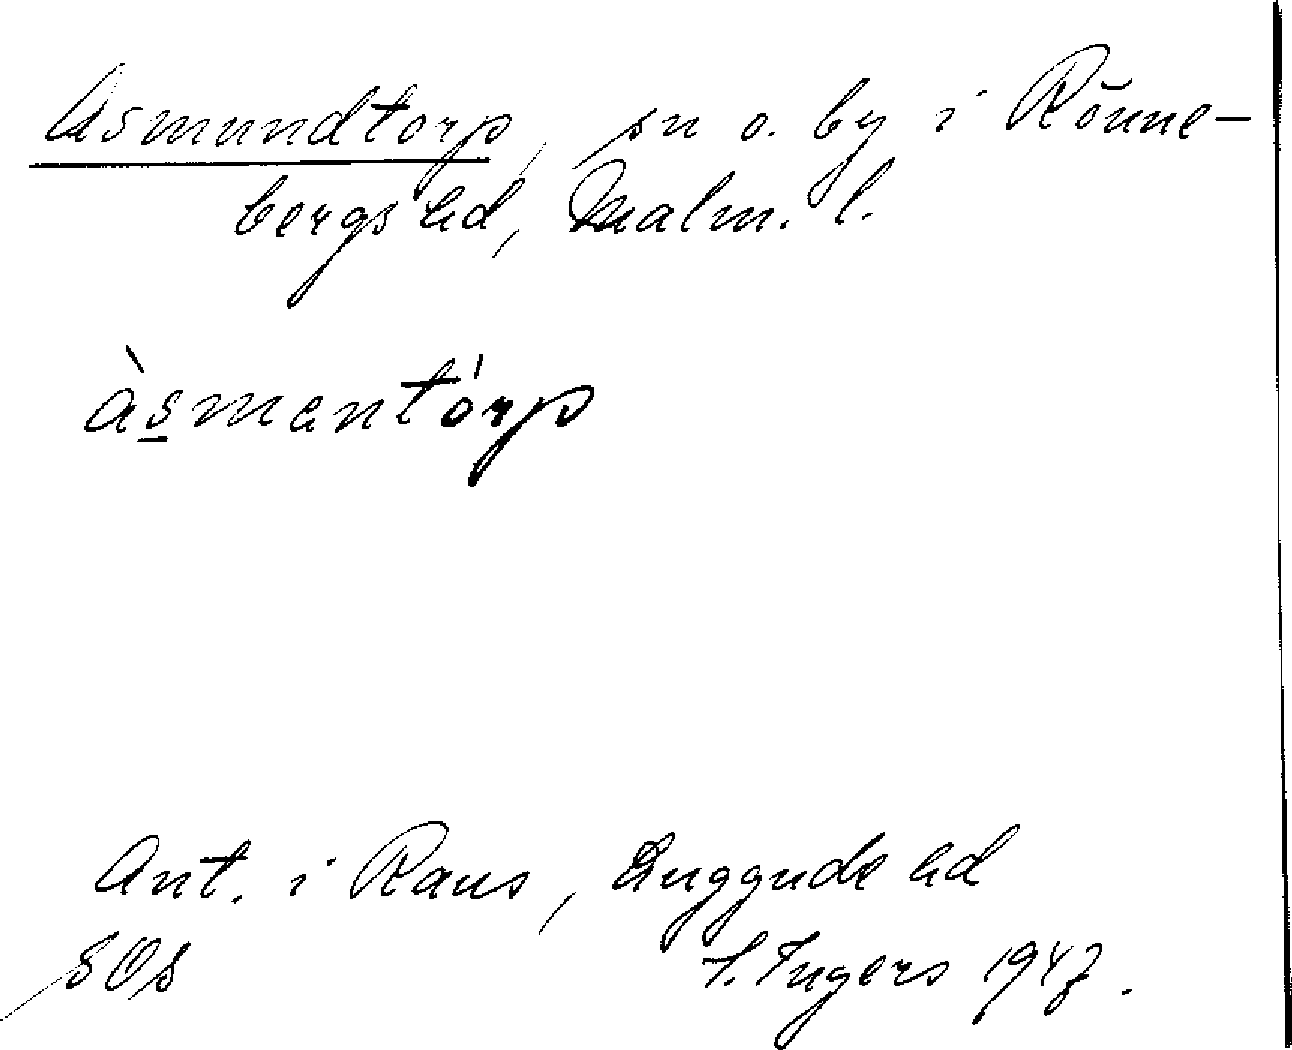 Asmundtorp, sn o. by i Rönne-
bergs hd, Malm. l.
àsmantórp
Ant. i Raus, Luggude hd
SOS I. Ingers 1947.